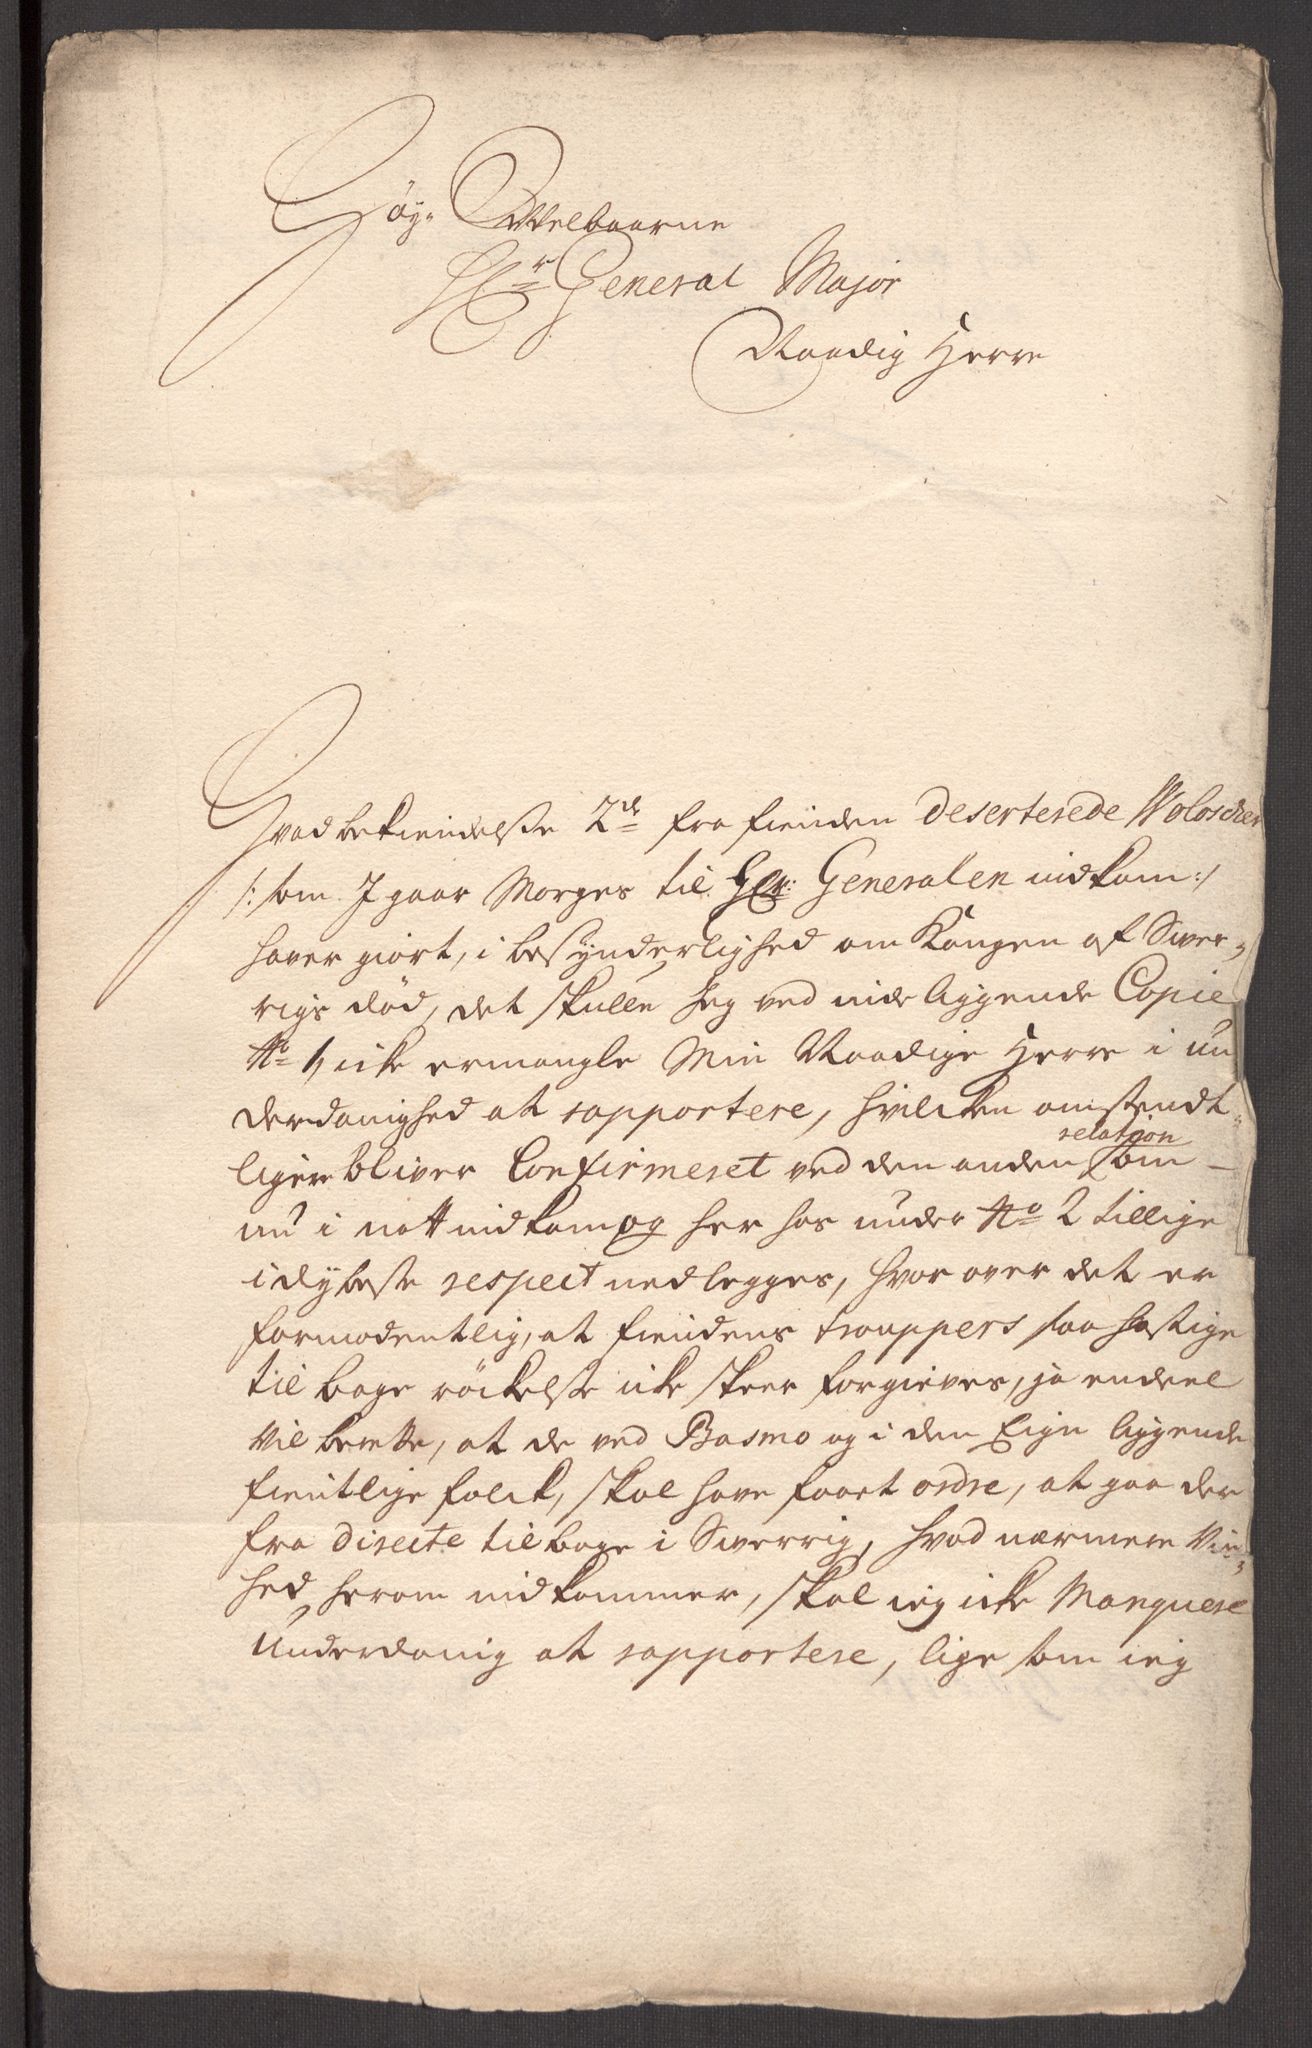 Høy- Edle og Welbaarne
Hr General Major
Naadig Herre
Hvad bekiendelsse 2de fra fienden deserterede Woloscher
/: som I gaar Morges til Hr: Generalen indkom :/
haver giort, i besynderlighed om Kongen af Swer-
rigs død, det skulle Jeg ved inde liggende Copie
No 1, icke ermangle Min Naadige Herre i un
derdanighed at rapportere, hvilcken omstendt-
ligere bliver Confirmeret ved den anden relation som
nu i natt indkom og her hos under No 2 tillige
i dybeste respect nedlegges, hvor over det er
formodentlig, at fiendens trouppers saa hastige
til bage röckelsse icke skeer forgieves, ja endeel
vil berette, at de ved Basmo og i den Eign liggende
fientlige folck, skal have faaet ordre, at gaa der
fra directe tilbage i Swerrig, hvad nærmere Vis-
hed herom indkommer, skal ieg icke Manquere
Underdanig at rapportere, lige som ieg